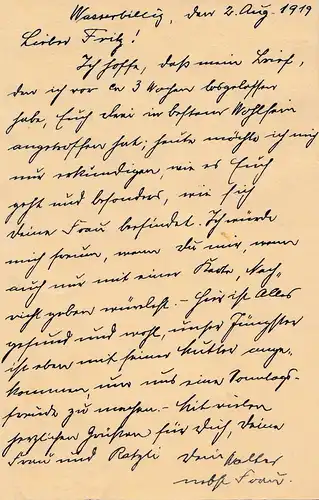 Wasserbillig, den 2. Aug. 1919
Lieber Fritz!
Ich hoffe, daß mein Brief,
den ich vor ca 3 Wochen losgelassen
habe, Euch drei in bestem Wohlsein
angetroffen hat; heute möchte ich mich
nur erkundigen, wie es Euch
geht und besonders, wie sich
Deine Frau befindet. Ich würde
mich freuen, wenn Du mir, wenn
auch nur mit einer Karte, Nach-
richt geben würdest. – Hier ist Alles
gesund und wohl, unser Jüngster
ist eben mit seiner Mutter ange-
kommen, um uns eine Sonntags-
freude zu machen. – Mit vielen
herzlichen Grüßen für Dich, Deine
Frau und Dein
nebst Frau.